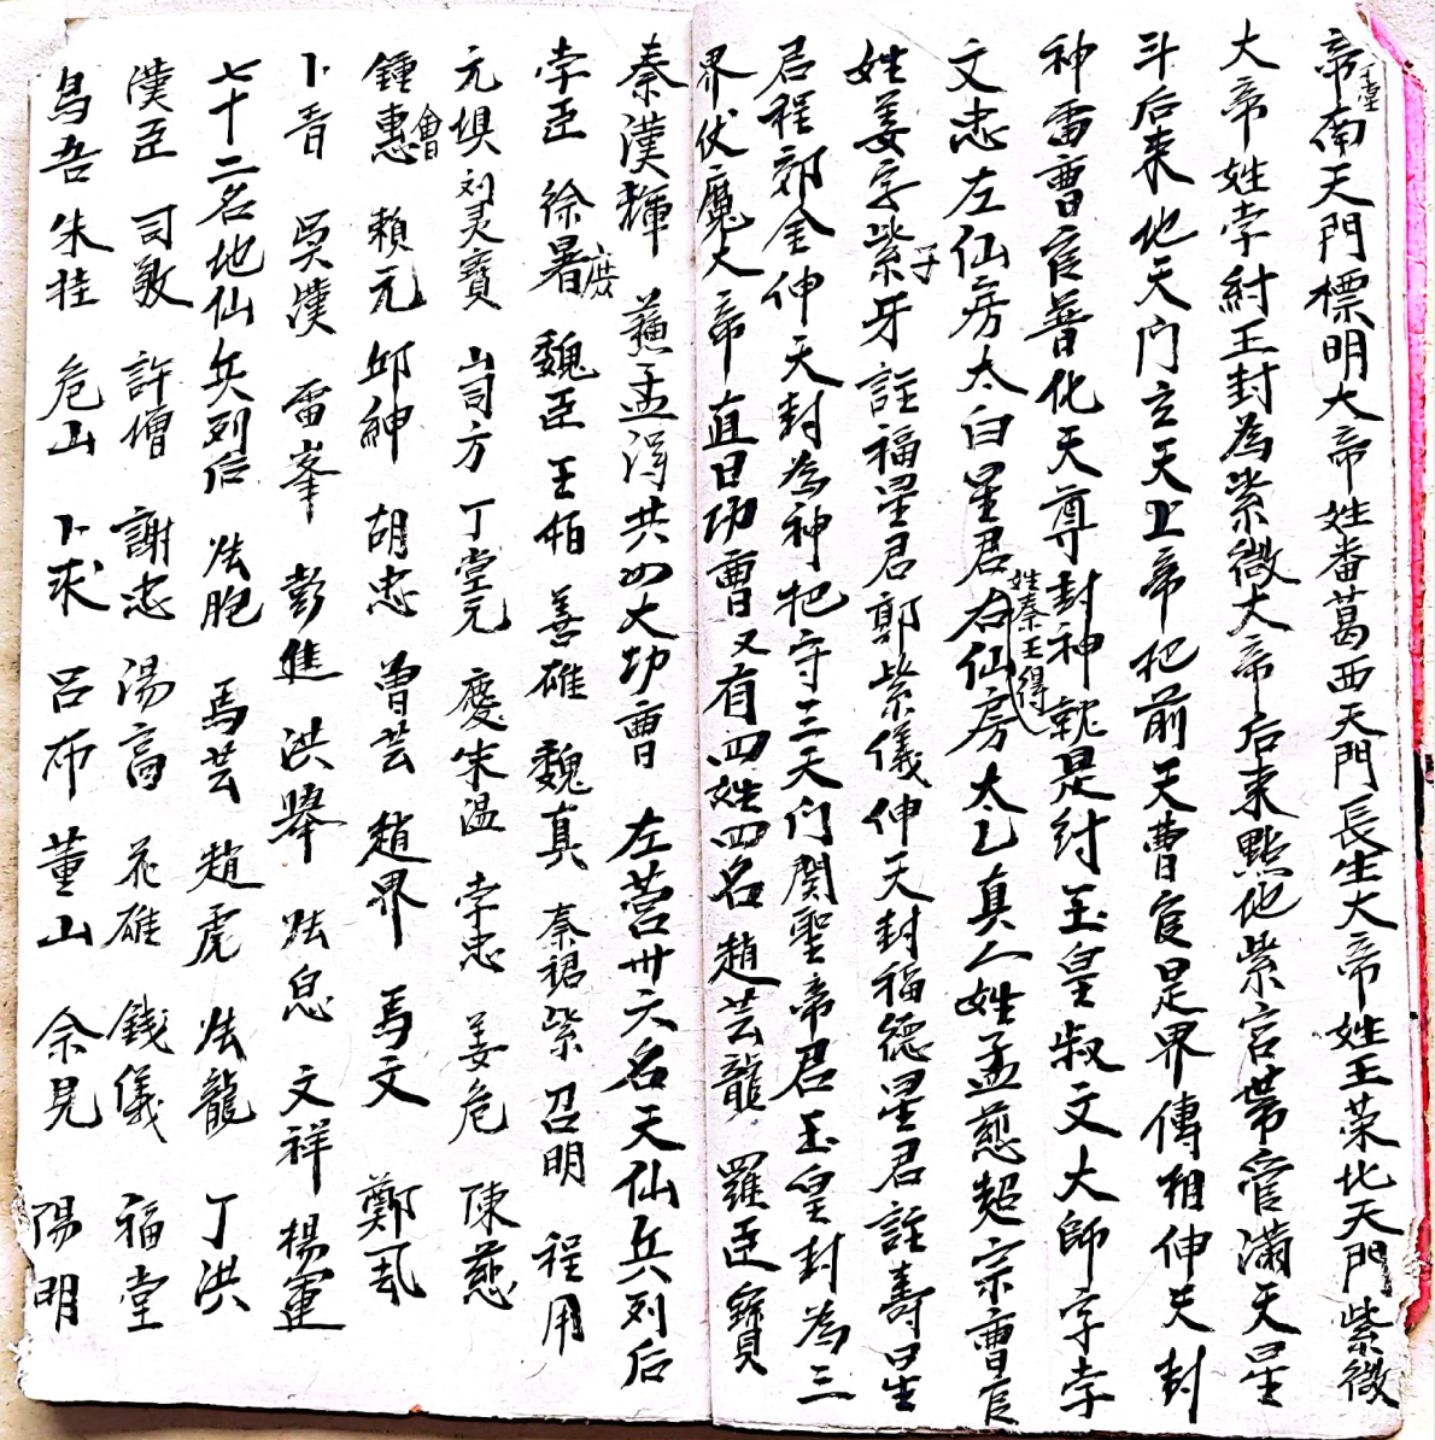 帝南天門標明大帝姓番葛西天門長生大帝姓王荣北天門紫微
大帝姓李紂王封為紫微大帝后来點他紫宫帶管滿天星
斗后来他天门玄天上帝把前天曹官是界傳相伸天封
神雷曹官普化天尊封神就是紂玉皇叔文大師字李
文忠左仙房太白星君右仙房太乙真人姓孟慈超宗曹官
姓秦王得
姓姜字紫牙註福星君郭紫儀伸天封福德星君註壽星
子
君程郊金伸天封為神把守三天门関聖帝君玉皇封為三
界伏魔大帝直日功曹又有四姓四名趙芸龍 羅臣 寳
秦漢輝 蘓孟淂共四大功曹 左营卅六名天仙兵列后
李臣 徐暑 魏臣 王伯 善碓 魏真 秦裙 紫召明 程用
庶
元埧 刘灵寳 山司方 丁堂元 慶宋温 李忠 姜危 陳慈
鍾惠 賴元 邱紳 胡忠 曾芸 趙界 馬文 鄭
會
卜青 吳漢 雷峯 彭進 洪舉 法息 文祥 楊運
七十二名地仙兵列后 法胞 馬芸 趙虎 法龍 丁洪
漢臣 司敬 許僧 謝忠 湯高 花碓 錢儀 福堂
烏吾 朱桂 危山 卜求 呂布 董山 余見 陽明